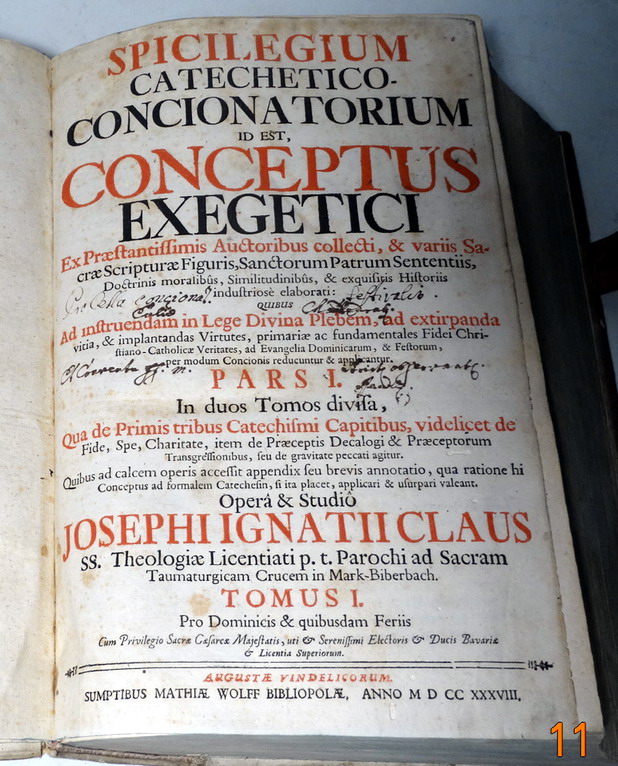 SPICILEGIUM
CATECHETICO-
CONCIONATORIUM
ID EST,
CONCEPTUS
EXEGETICI
Ex Præstantissimis Auctoribus collecti, & variis Sa-
cræ Scripturæ Figuris, Sanctorum Patrum Sententiis,
Doctrinis moralibûs, Similitudinibûs, & exquisitis Historiis
industriosè elaborati:
QUIBUS
Ad instruendam in Lege Divina Plebem, ad extirpanda
vitia, & implantandas Virtutes, primariæ ac fundamentales Fidei Chri-
stiano-Catholicæ Veritates, ad Evangelia Dominicarum, & Festorum,
per modum Concionis reducuntur & applicantur.
PARS I.
In duos Tomos divisa,
Qua de Primis tribus Catechismi Capitibus, videlicet de
Fide, Spe, Charitate, item de Præceptis Decalogi & Præceptorum
Transgressionibus, seu de gravitate peccati agitur.
Quibus ad calcem operis accessit appendix seu brevis annotatio, qua ratione hi
Conceptus ad formalem Catechesin, si ita placet, applicari & usurpari valeant.
Operâ & Studiô
JOSEPHI IGNATII CLAUS
ss. Theologiæ Licentiati p. t. Parochi ad Sacram
Taumaturgicam Crucem in Mark-Biberbach.
TOMUS I.
Pro Dominicis & quibusdam Feriis
Cum Privilegio Sacræ Cæsareæ Majestatis, uti & Serenissimi Electoris & Ducis Bavariæ
& Licentia Superiorum.
AUGUSTÆ VINDELICORUM.
SUMPTIBUS MATHIÆ WOLFF BIBLIOPOLÆ, ANNO M D CC XXXVIII.
11